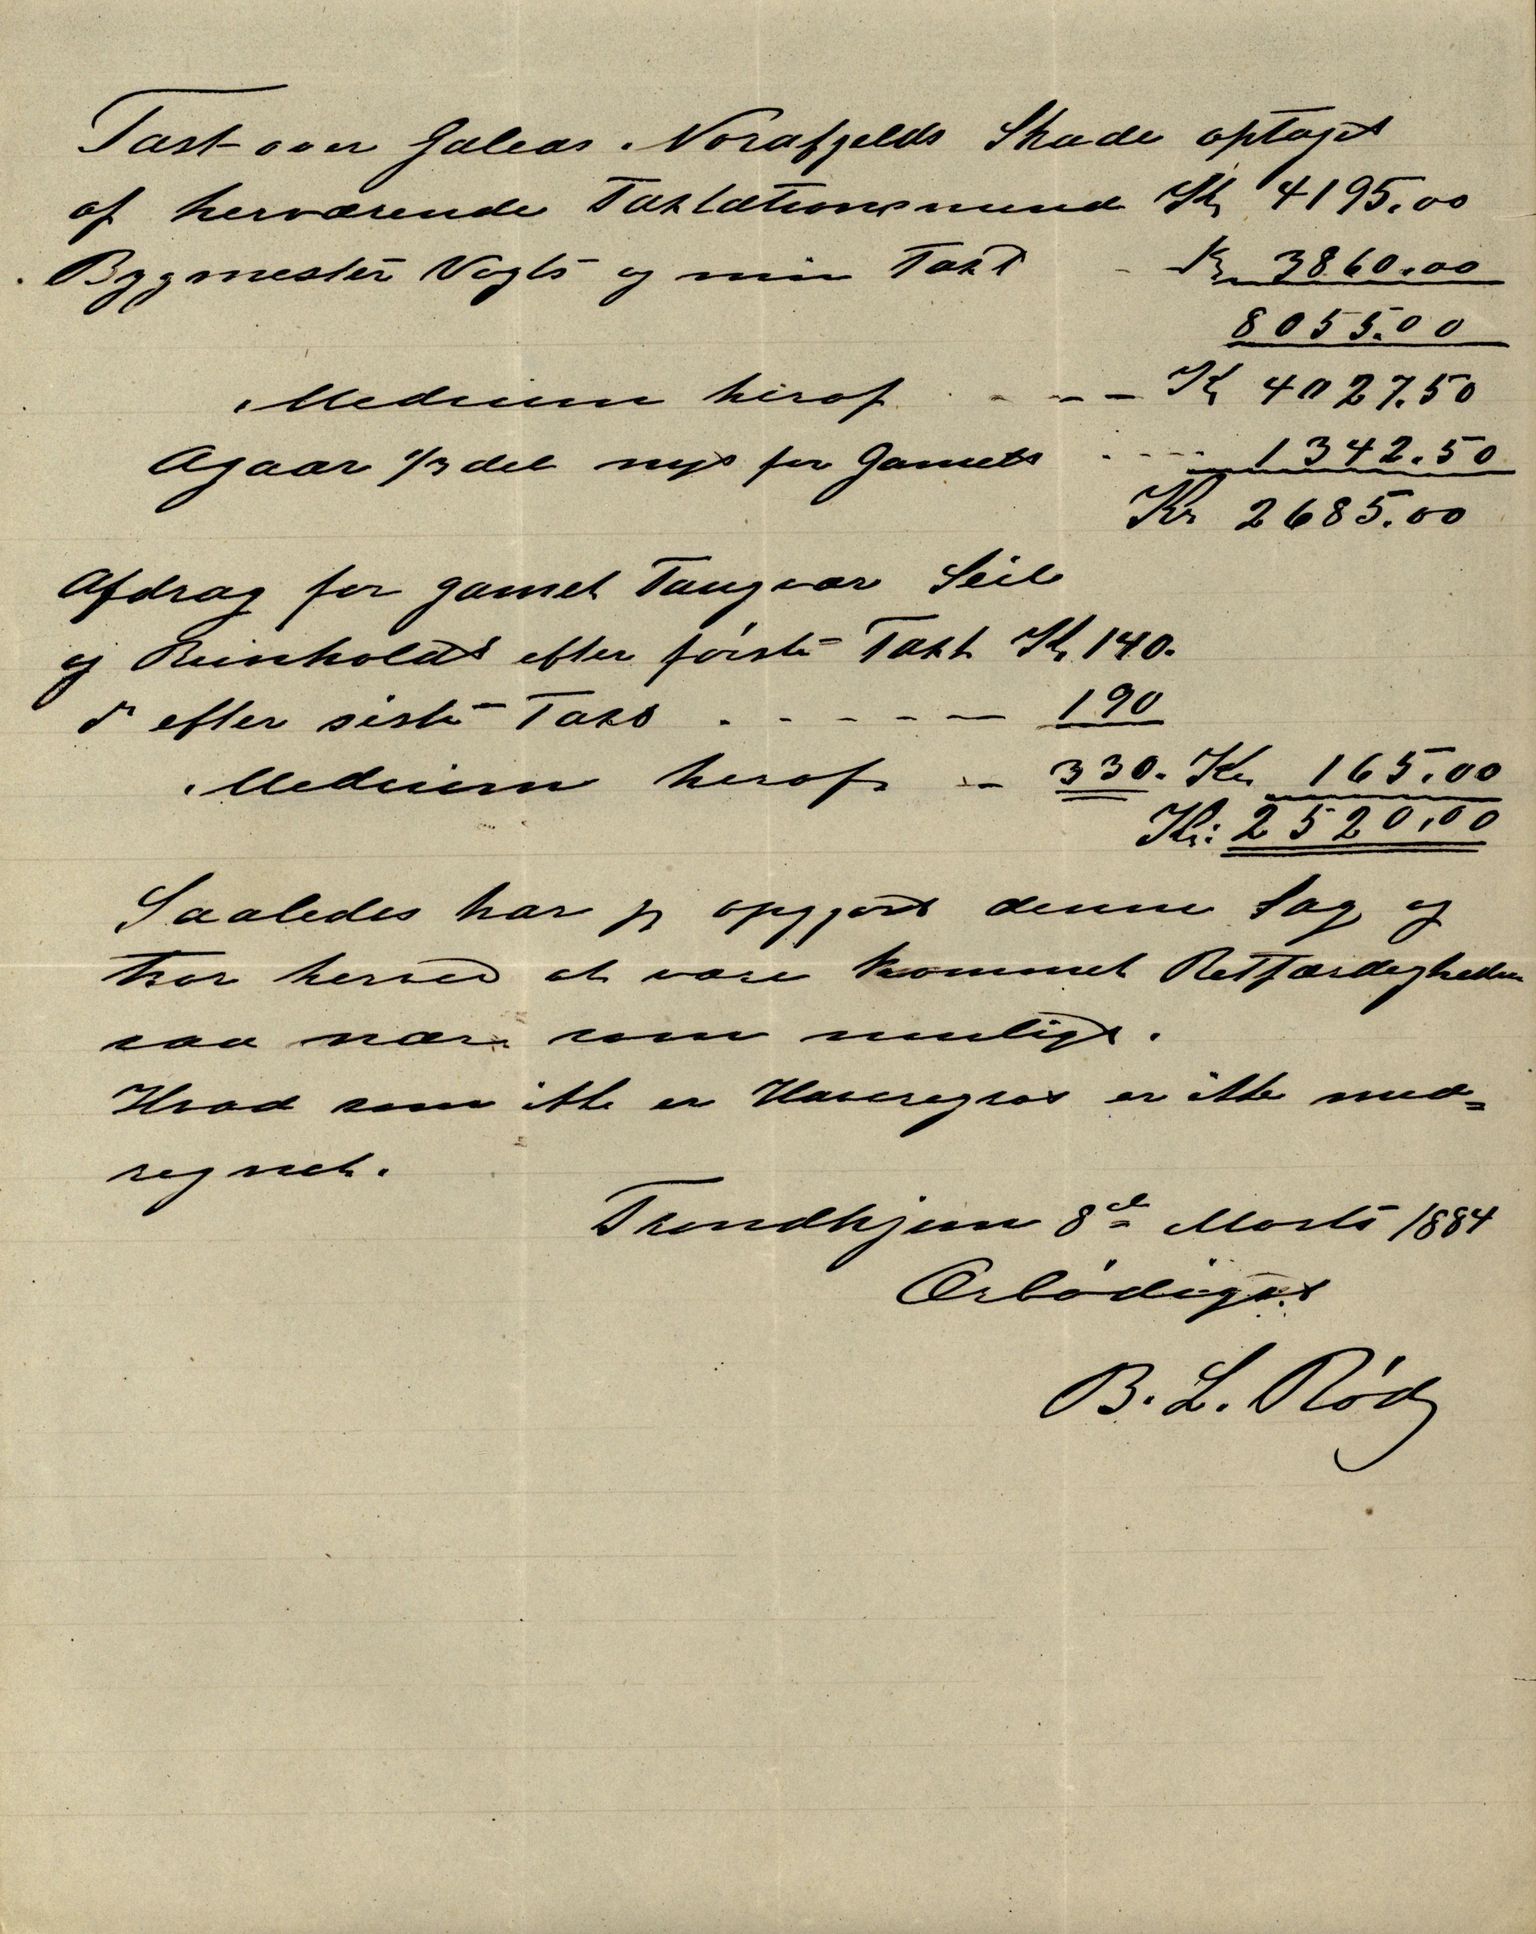 Taxt over Galeas Nordfjelds Skade optaget
af herværende Taxtationsmænd Kr 4195.00
Bygmester Vogts og min Taxt - Kr 3860.00
8055.00
Medium heraf - - - Kr 4027.50
Afgaar 1/3 del nyt for Gamelt - - - - 1342.50
Kr 2685.00
Afdrag for gamelt Taugvær Seil
og Beinholdt efter første Taxt Kr 140.
do efter siste Taxt . - - - - - 190
Medium heraf - - 330. Kr 165.00
Kr: 2520.00
Saaledes har jeg opgjort denne Sag og
tror herved at være kommet Retfærdigheden
saa nær som muligt.
Hvad som ikke er Havaregros er ikke med=
regnet.
Trondhjem 8de Marts 1884
Ærbødigst
B. L. Rødy